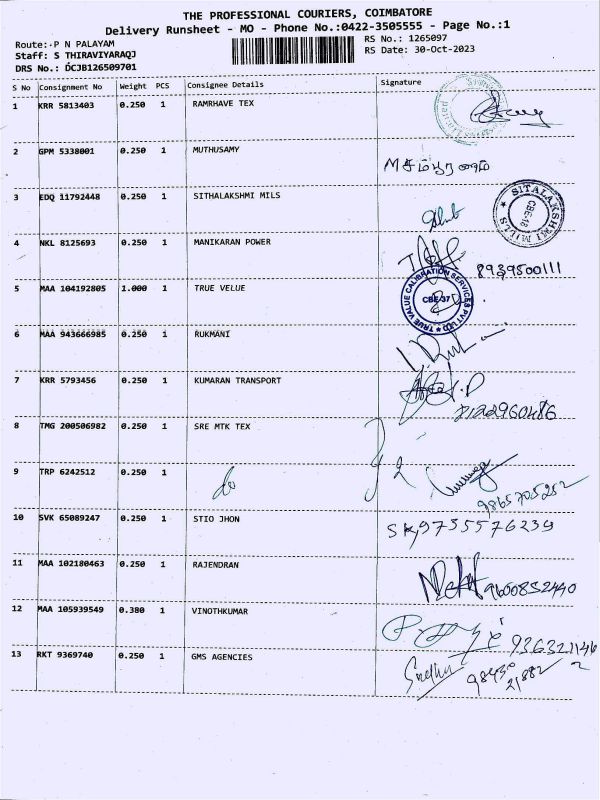 THE PROFESSIONAL COURIERS, COIMBATORE
Delivery Runsheet - MO - Phone No.:0422-3505555 - Page No.:1
Route:- P N PALAYAM
RS No.: 1265097
Staff: S THIRAVIYARAQJ
RS Date: 30-Oct-2023
DRS No.: DCJB126509701
S No Consignment No Weight PCS Consignee Details Signature
1 KRR 5813403 0.250 1 RAMRHAVE TEX
2 GPM 5338001 0.250 1 MUTHUSAMY
3 EDQ 11792448 0.250 1 SITHALAKSHMI MILS
SITALAKSHMI MILLS
CBE-18
4 NKL 8125693 0.250 1 MANIKARAN POWER
8939500111
5 MAA 104192805 1.000 1 TRUE VELUE
TRUE VALUE CALIBRATION SERVICES PVT LTD
CBE-37
6 MAA 943666985 0.250 1 RUKMANI
7 KRR 5793456 0.250 1 KUMARAN TRANSPORT
8 TMG 200506982 0.250 1 SRE MTK TEX
9 TRP 6242512 0.250 1
9865705252
10 SVK 65089247 0.250 1 STIO JHON
9735576239
11 MAA 102180463 0.250 1 RAJENDRAN
9600852440
12 MAA 105939549 0.380 1 VINOTHKUMAR
13 RKT 9369740 0.250 1 GMS AGENCIES